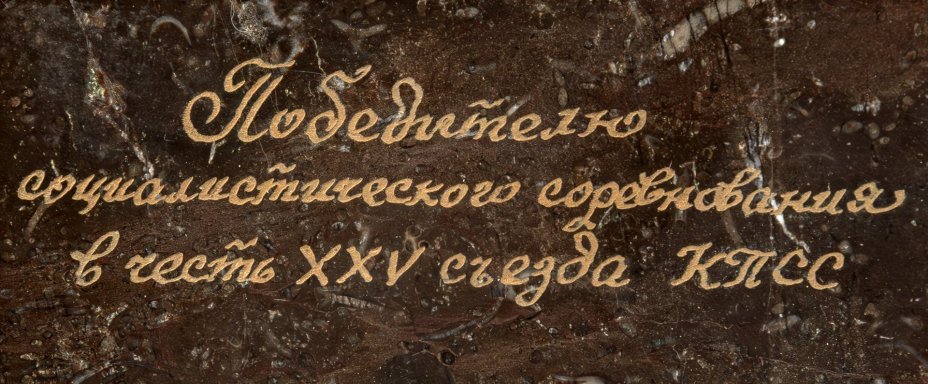 Победителю
социалистического соревнования
в честь XXV съезда КПСС